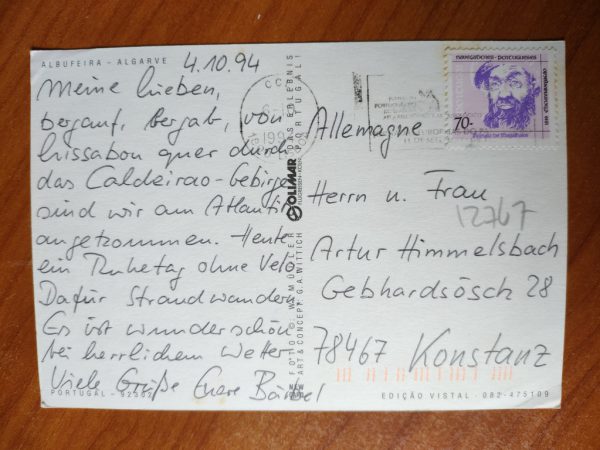 ALBUFEIRA - ALGARVE
4.10.94
Meine Lieben,
bergauf, bergab, von
Lissabon quer durch
das Caldeirao-Gebirge
sind wir am Atlantik
angekommen. Heute
ein Ruhetag ohne Velo.
Dafür Strandwandern.
Es ist wunderschön
bei herrlichem Wetter
Viele Grüße Euere Bärbel
PORTUGAL - 92302
DAS ERLEBNIS
PORTUGAL!
OLIMAR
FLUGREISEN · KÖLN
FOTO © W. MÜLLER
ART & CONCEPT: G.A. WITTICH
NAVEGADORES PORTUGUESES
70-
Allemagne
Herrn u. Frau
12767
Artur Himmelsbach
Gebhardsösch 28
78467 Konstanz
EDIÇÃO VISTAL · 082-475109